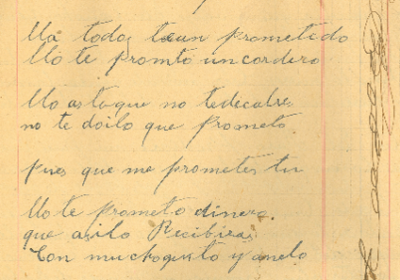 Lla todos tean prometedo
Llo te promto uncordero
Llo astoque no tedecalses
no te doilo que prometo.
pues que me prometes tu
Llo te prometo dinero.
que asilo Recibiras
Con muchogusto y anelo